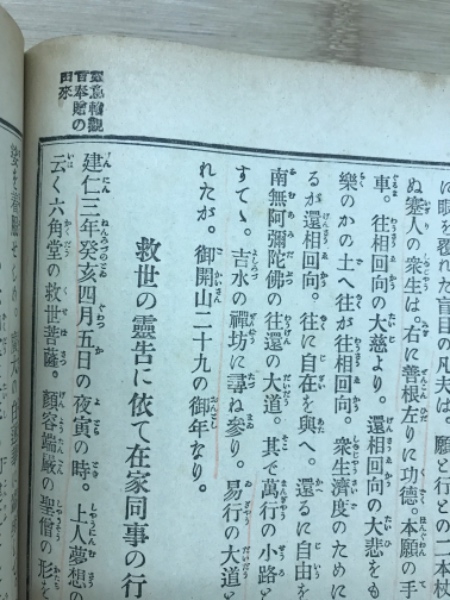 に眼を覆れた盲目の凡夫は。願と行との二本杖
ぬ蹇人の衆生は。右に善根左りに功德。本願の手
車。往相回向の大慈より。還相回向の大悲をも
樂のかの土へ往が往相回向。衆生濟度のために
るが還相回向。往に自在を與へ。還るに自由を
南無阿彌陀佛の往還の大道。其で萬行の小路と
すてゝ。吉水の禪坊に尋ね參り。易行の大道と
れたが。御開山二十九の御年なり。
救世の靈告に依て在家同事の行
建仁三年癸亥四月五日の夜寅の時。上人夢想の
云く六角堂の救世菩薩。顏容端嚴の聖僧の形を
觀
音奉贈の
由來